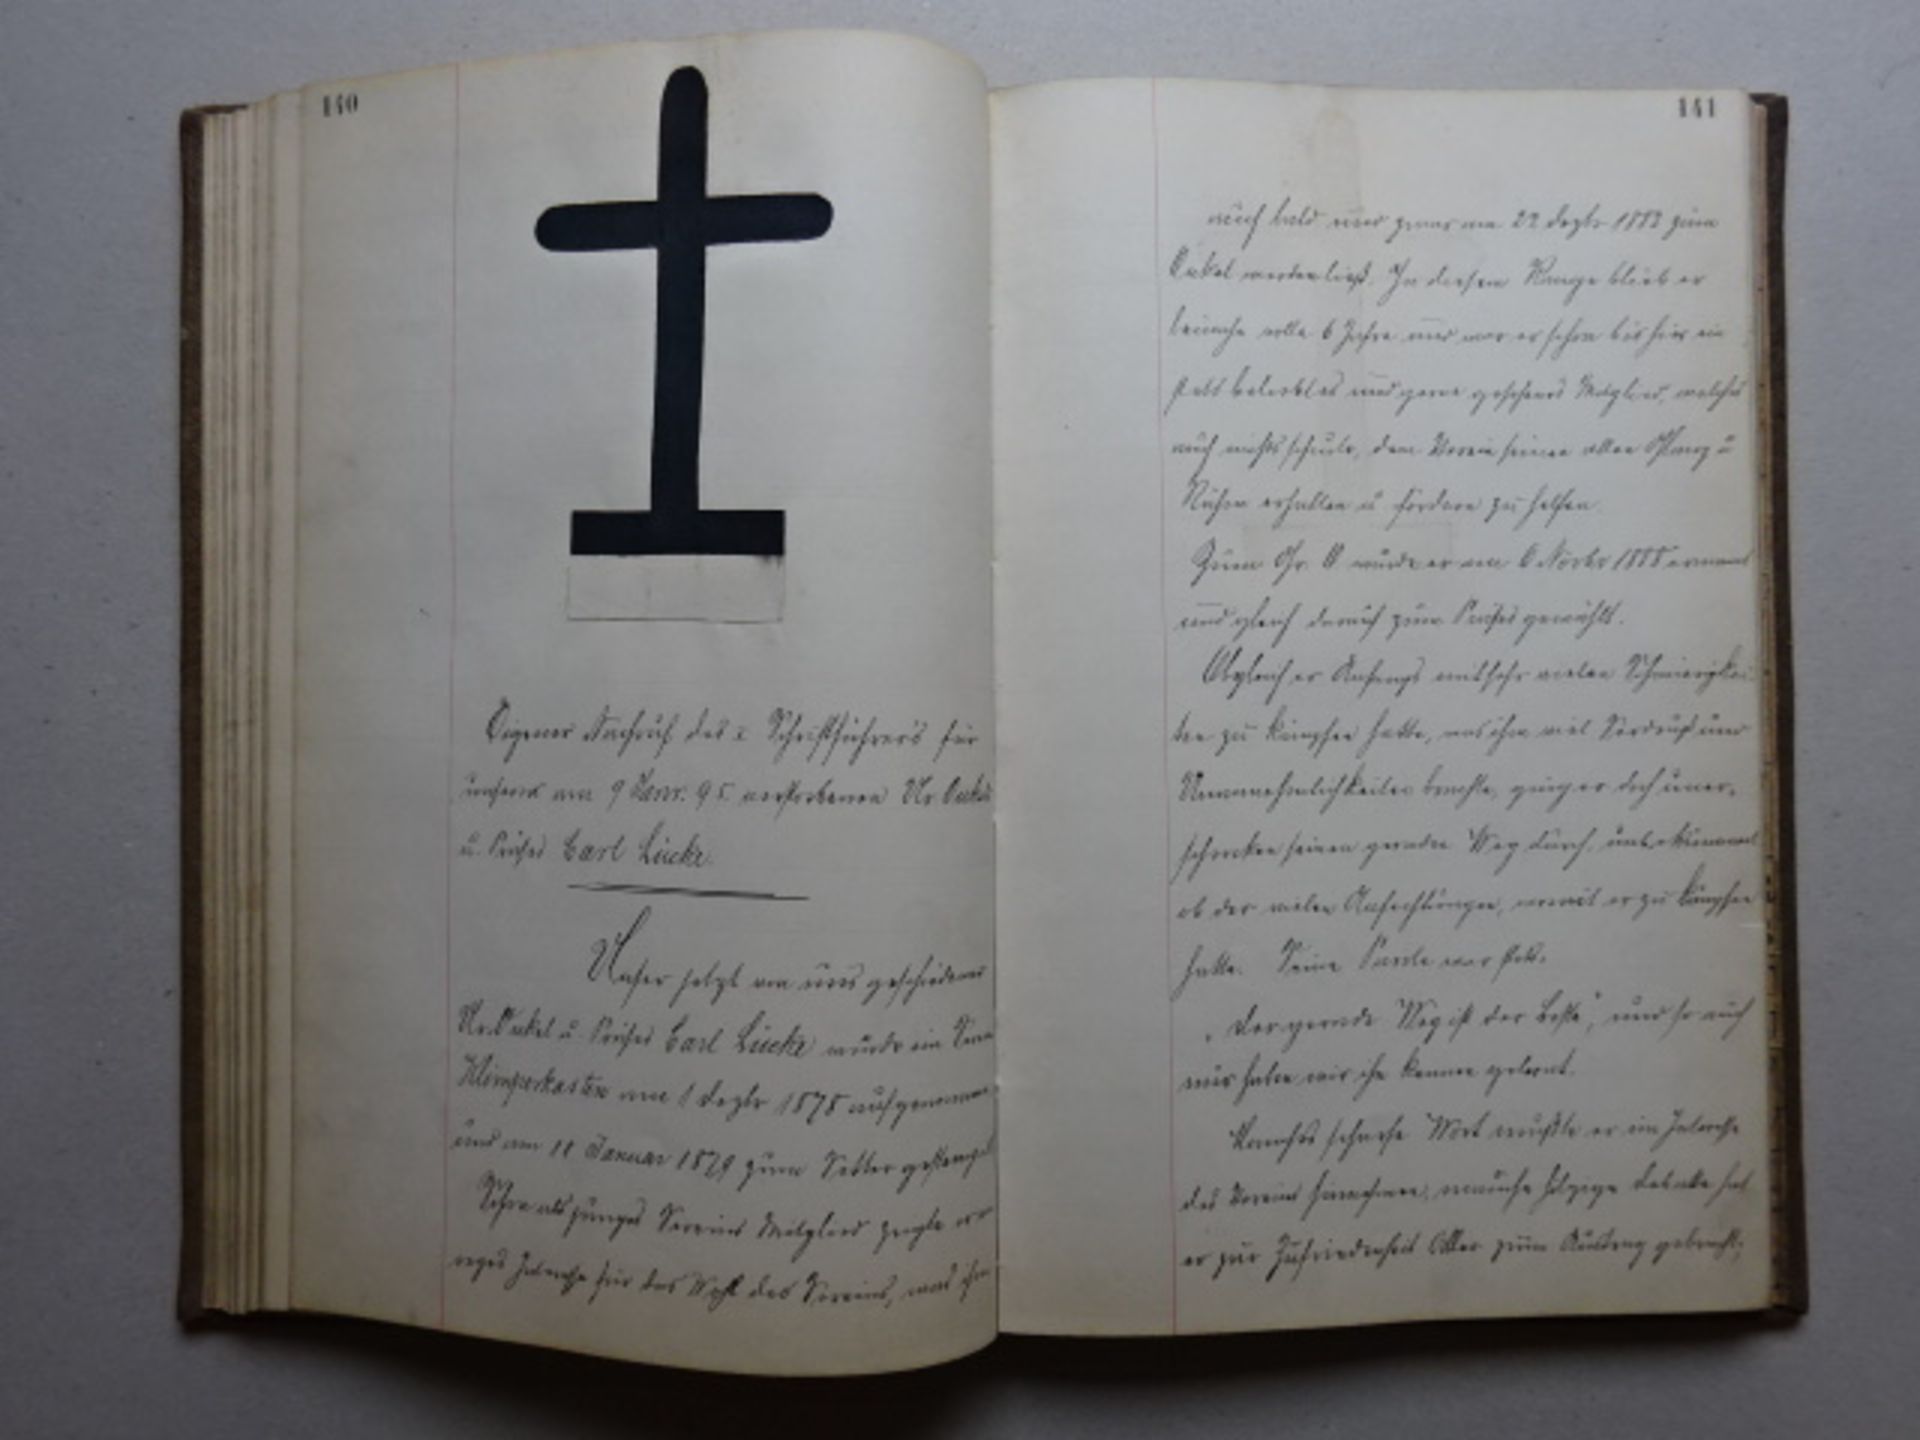 140
Eigener Nachruf des I Schriftführers für
unsern am 9 Janr. 95 verstorbenen Ur. Onkel
u. Präses Carl Lücke.
Unser jetzt von uns geschiedener
Ur. Onkel u. Präses Carl Lücke wurde im
Klimperkasten am 1 Dezbr 1878 aufgenommen
und am 11 Januar 1879 zum Vetter gestempelt
Schon als junges Vereins Mitglied zeigte er
reges Interesse für das Wohl des Vereins, was ihn
141
auch bald und zwar am 22 Dezbr 1882 zum
Onkel werden ließ. In diesem Range blieb er
beinahe volle 6 Jahre und war er schon bis hier ein
stets beliebtes und gerne gesehenes Mitglied, welches
auch nichts scheute, dem Verein seinen alten Glanz u
Ruhm erhalten u fördern zu helfen.
Zum Gr. O wurde er am 6 Novbr 1888 ernannt
und gleich darauf zum Präses gewählt.
Obgleich er Anfangs mit sehr vielen Schwierigkei-
ten zu kämpfen hatte, was ihm viel Verdruß und
Unannehmlichkeiten brachte, ging er doch uner-
schrocken seinen geraden Weg durch, unbekümmert
ob der vielen Anfechtungen, womit er zu kämpfen
hatte. Seine Parole war stets.
„Der gerade Weg ist der beste", und so auch
nur haben wir ihn kennen gelernt.
Manches scharfe Wort mußte er im Interesse
des Vereins hinnehmen, manche hitzige Debatte hat
er zur Zufriedenheit Aller zum Austrag gebracht,